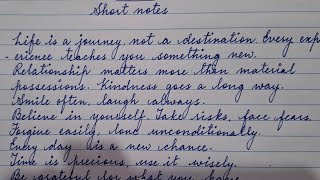 Short notes
Life is a journey not a destination Every exp
- erience teaches you something new.
Relationship matters more than material
possessions. Kindness goes a long way.
Smile often, laugh always.
Believe in yourself. Take risks, face fears.
Forgive easily, love unconditionally.
Every day is a new chance.
Time is precious, use it wisely.
Be grateful for what you have